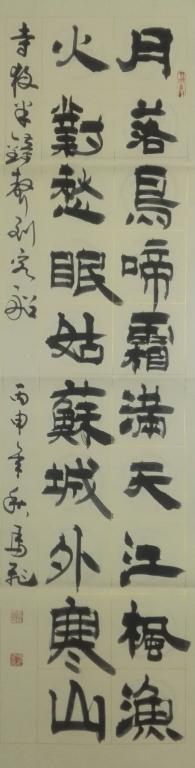 月落鳥啼霜滿天江楓漁
火對愁眠姑蘇城外寒山
寺夜半鐘聲到客船 丙申年秋馬飛